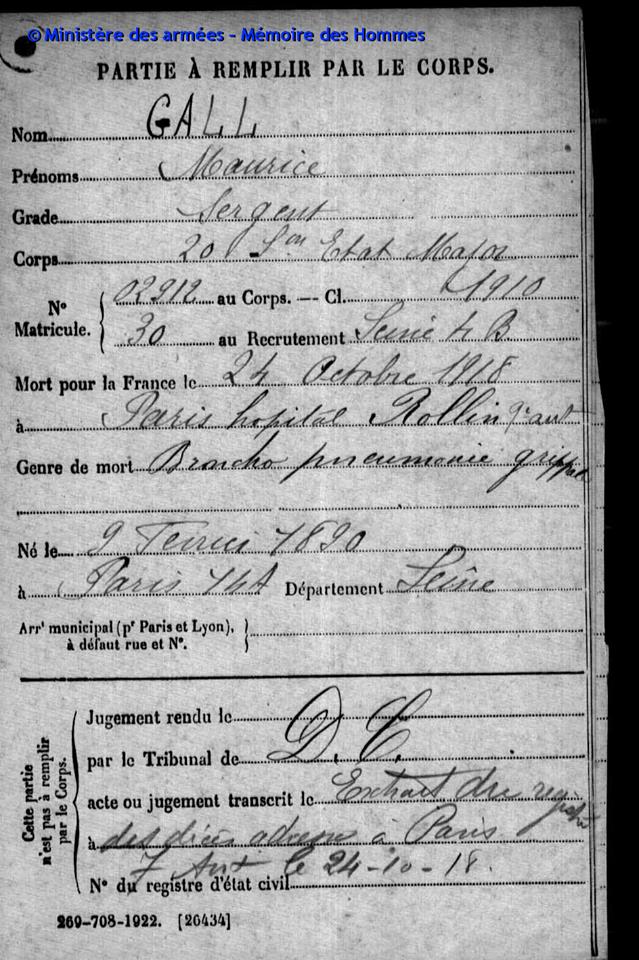 © Ministère des armées - Mémoire des Hommes
PARTIE À REMPLIR PAR LE CORPS.
Nom GALL
Prénoms Maurice
Grade Sergent
Corps 20 Son Etat Major
N° Matricule. 02912 au Corps. — Cl. 1910
30 au Recrutement Seine 4 B.
Mort pour la France le 24 Octobre 1918
à Paris hopital Rollin
Genre de mort Broncho pneumonie grippale
Né le 9 Fevrier 1890
à Paris 14A Département Seine
Arrt municipal (pr Paris et Lyon),
à défaut rue et N°.
Cette partie
n'est pas à remplir
par le Corps.
Jugement rendu le
par le Tribunal de D. C.
acte ou jugement transcrit le Extrait du registre
à des décès à Paris
7 Art le 24-10-18.
N° du registre d'état civil
269-708-1922. [26434]